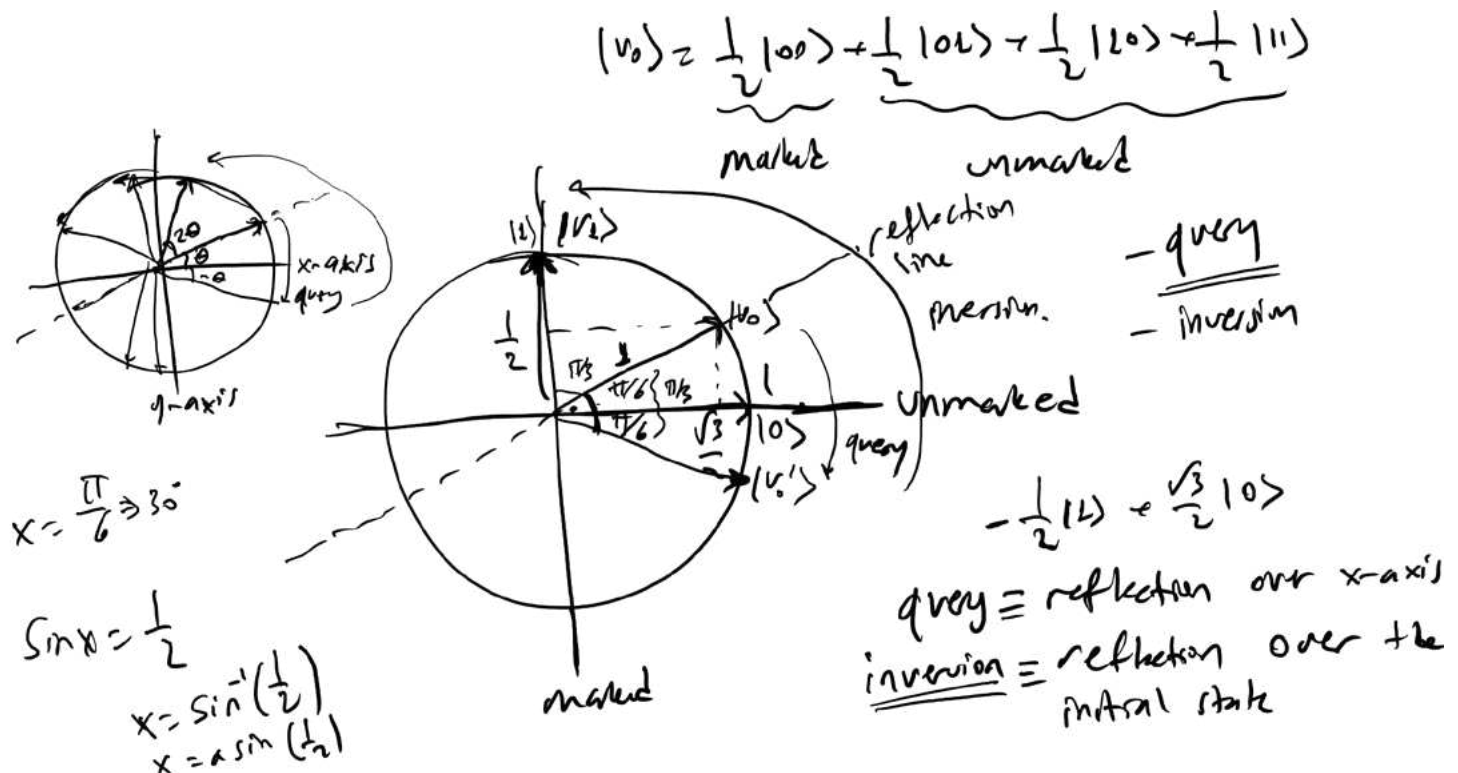 |v₀⟩ = 1/2 |00⟩ + 1/2 |01⟩ + 1/2 |10⟩ + 1/2 |11⟩
marked unmarked
2θ
θ
-θ
x-axis
query
y-axis
|1⟩ |v₁⟩
reflection
line
inversion.
- query
- inversion
1/2
|v₀⟩
1
π/3
π/6 } π/3
π/6
1
unmarked
√3
|0⟩
query
|v₀'⟩
marked
x = π/6 ⇒ 30°
sin x = 1/2
x = sin⁻¹(1/2)
x = asin(1/2)
- 1/2 |1⟩ + √3/2 |0⟩
query ≡ reflection over x-axis
inversion ≡ reflection over the
initial state